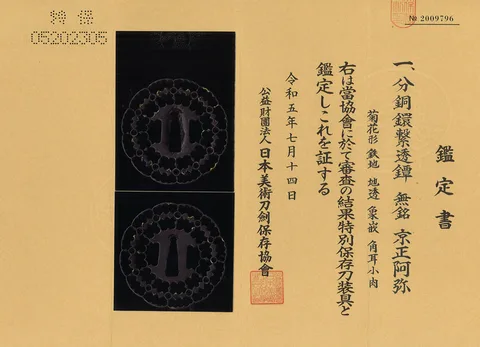 № 2009796
特保
05202305
鑑定書
一、分銅鐶繋透鐔 無銘 京正阿弥
菊花形 鉄地 地透 象嵌 角耳小肉
右は當協會に於て審査の結果特別保存刀装具と
鑑定しこれを証する
令和五年七月十四日
公益財團法人 日本美術刀劍保存協會